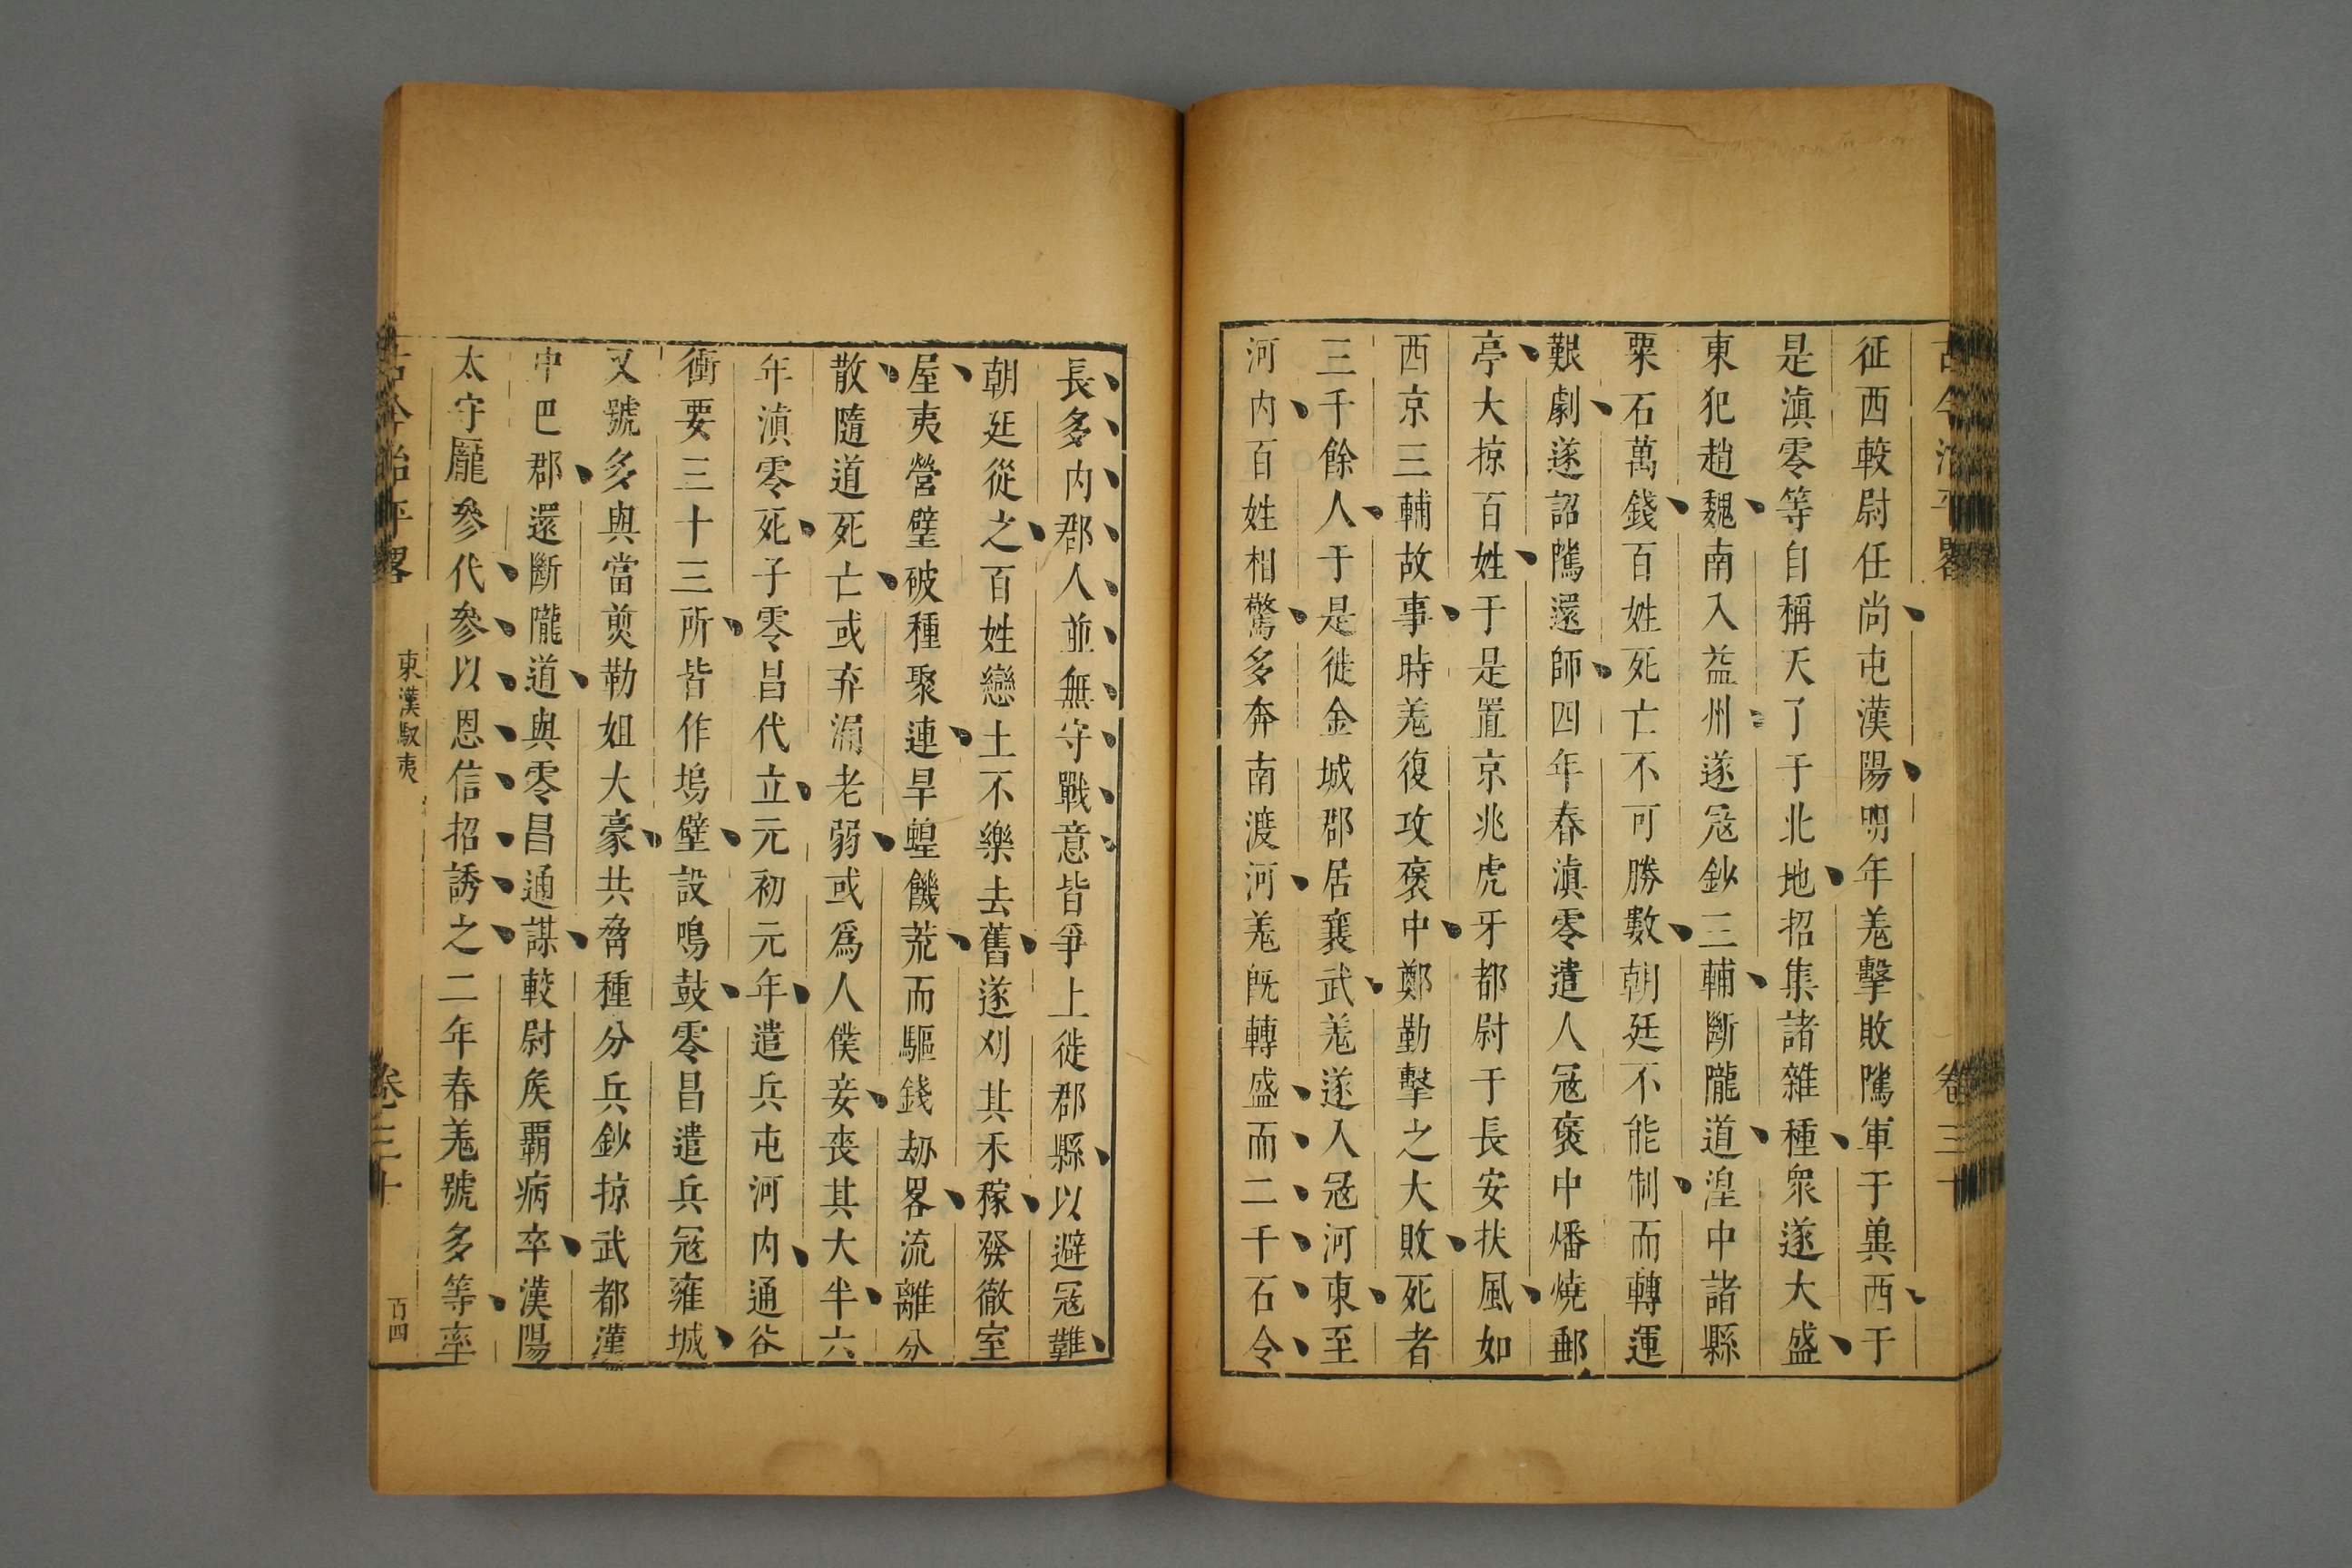 古今治平畧
卷三十
征西較尉任尚屯漢陽明年羗擊敗隲軍于兾西于
是滇零等自稱天了于北地招集諸雜種衆遂大盛
東犯趙魏南入益州遂冦鈔三輔斷隴道湟中諸縣
粟石萬錢百姓死亡不可勝數朝廷不能制而轉運
艱劇遂詔隲還師四年春滇零遣人冦褒中燔燒郵
亭大掠百姓于是置京兆虎牙都尉于長安扶風如
西京三輔故事時羗復攻褒中鄭勤擊之大敗死者
三千餘人于是徙金城郡居襄武羗遂入冦河東至
河内百姓相驚多奔南渡河羗既轉盛而二千石令
長多内郡人並無守戰意皆爭上徙郡縣以避冦難
朝廷從之百姓戀土不樂去舊遂刈其禾稼發徹室
屋夷營壁破種聚連旱蝗饑荒而驅錢劫畧流離分
散隨道死亡或弃涓老弱或爲人僕妾喪其大半六
年滇零死子零昌代立元初元年遣兵屯河内通谷
衝要三十三所皆作塢壁設鳴鼓零昌遣兵冦雍城
又號多與當煎勒姐大豪共脅種分兵鈔掠武都漢
中巴郡還斷隴道與零昌通謀較尉矦覇病卒漢陽
太守龐參代參以恩信招誘之二年春羗號多等率
古今治平畧
東漢馭夷
卷三十
百四